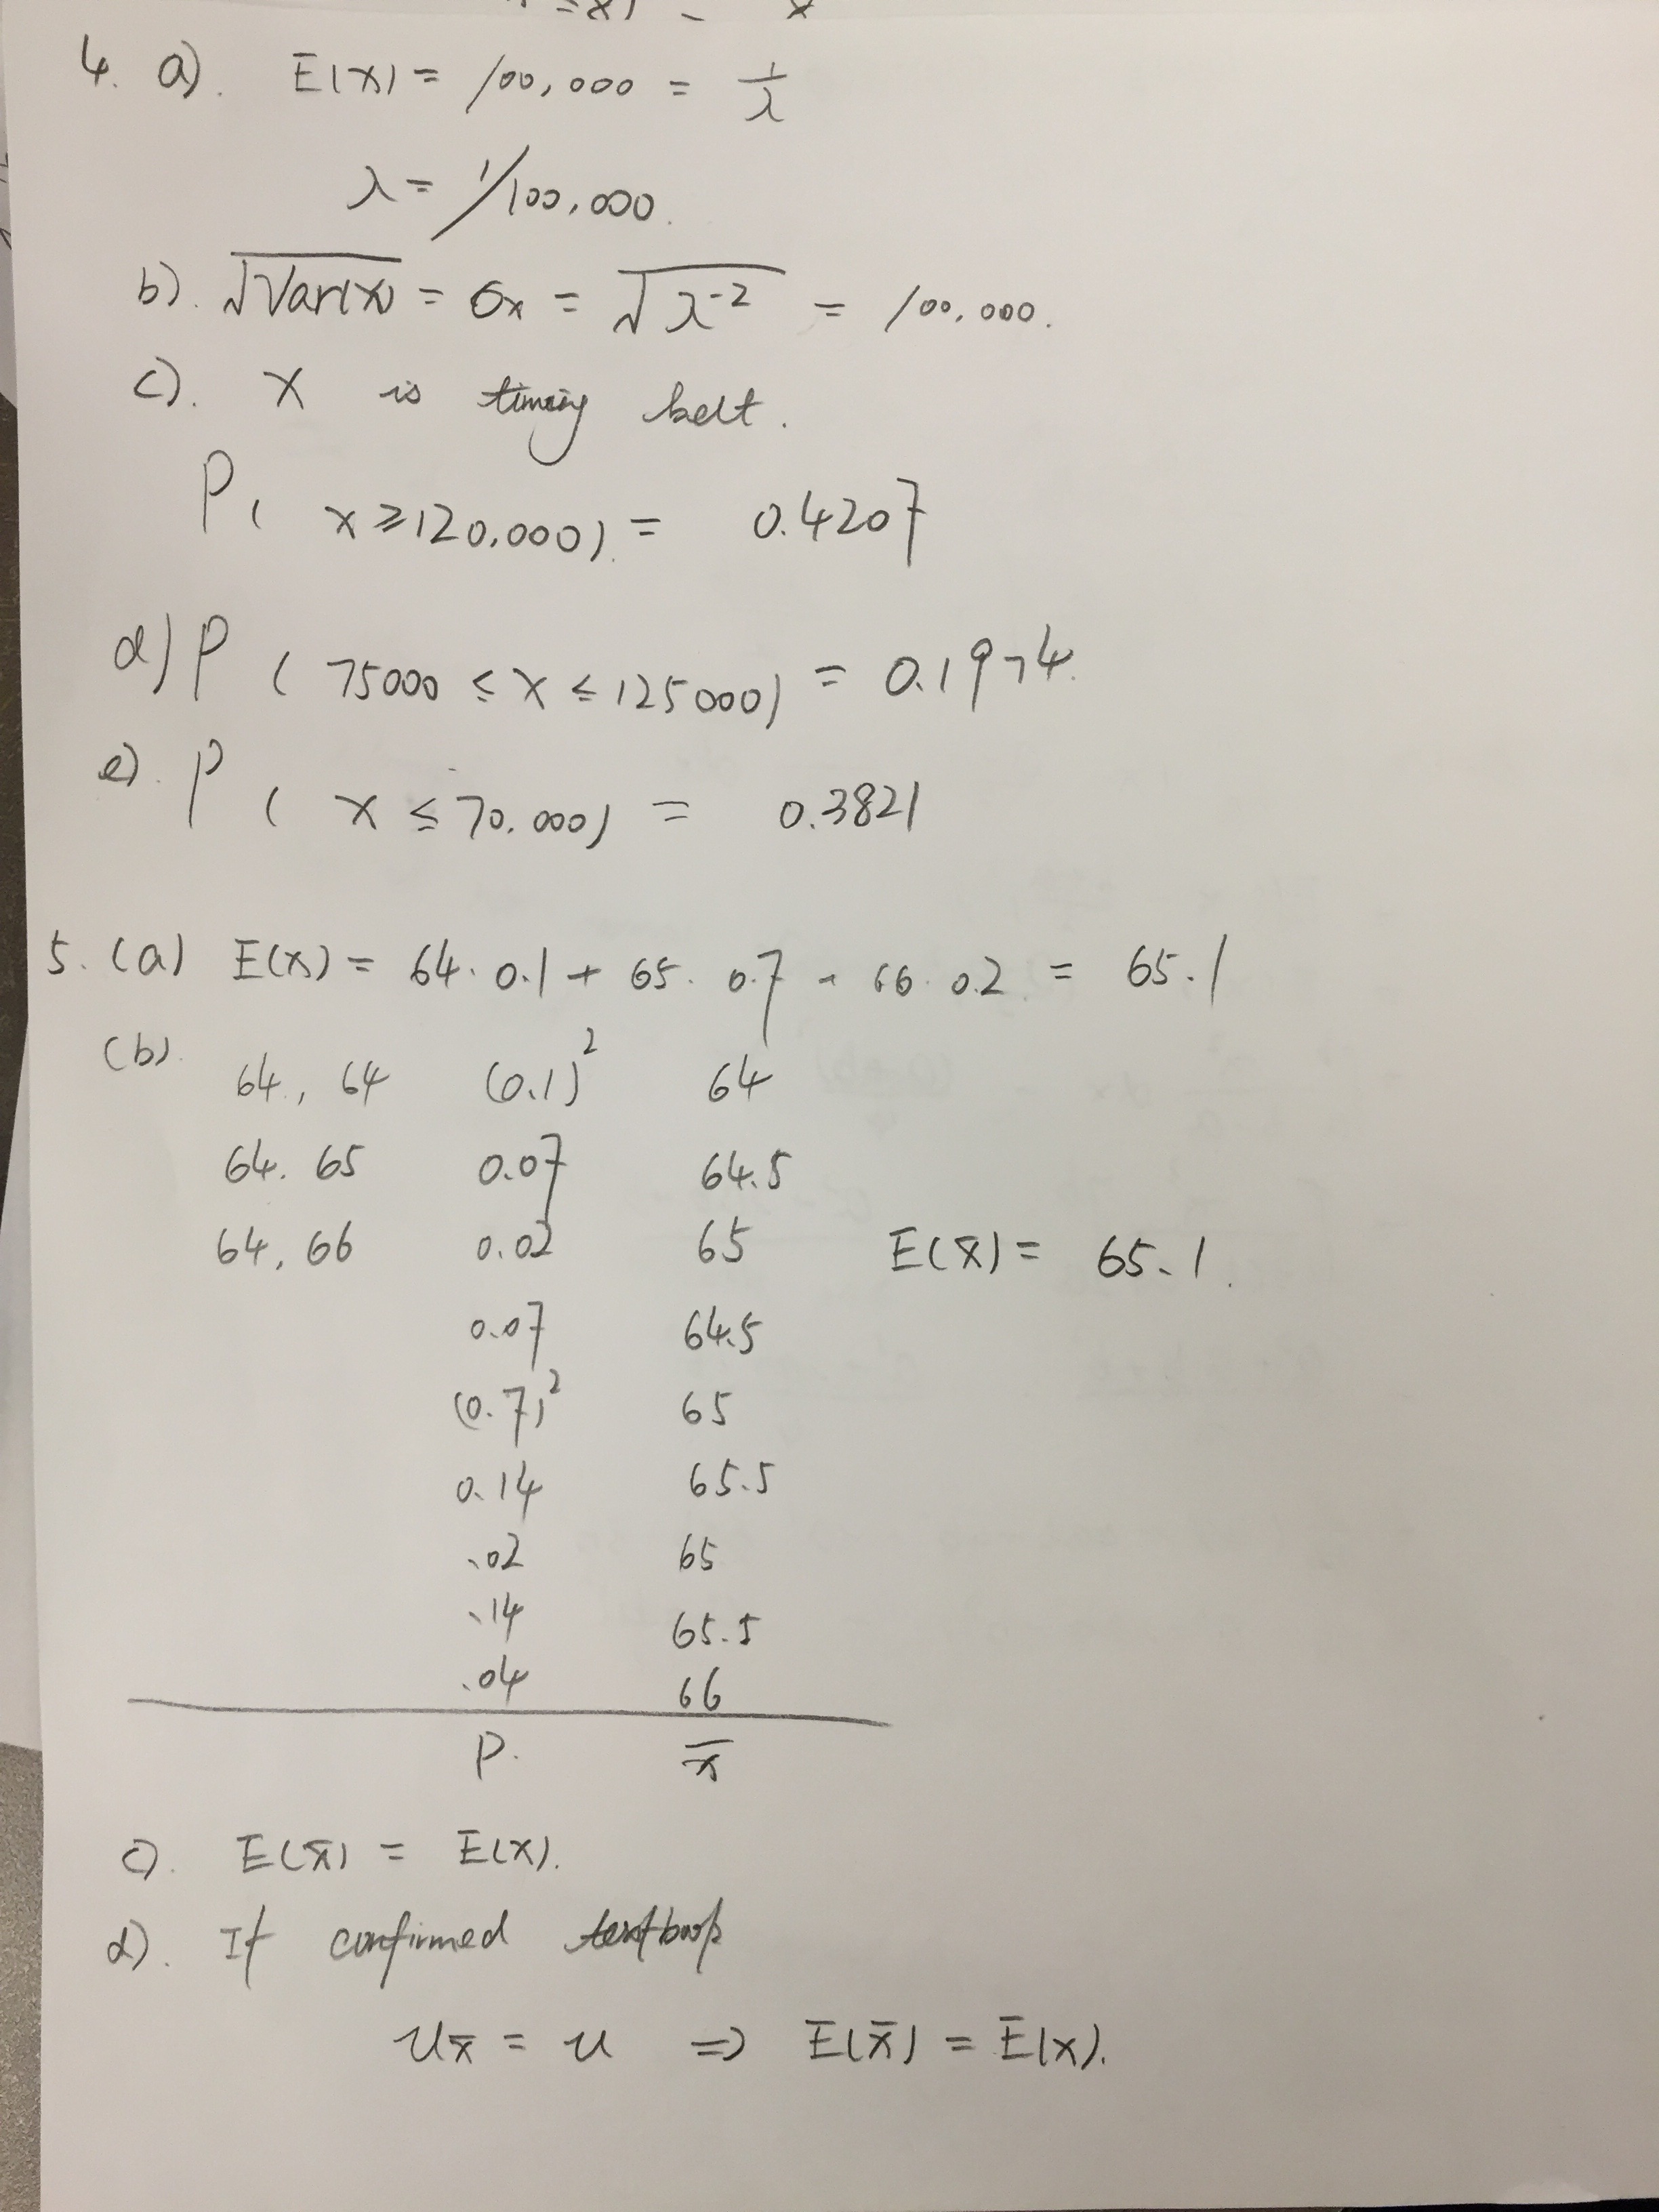 4. a). E(X) = 100,000 = 1/λ
λ = 1/100,000.
b). √Var(X) = σx = √λ^-2 = 100,000.
c). X is timing belt.
P( X ≥ 120,000) = 0.4207
d) P ( 75000 ≤ X ≤ 125000) = 0.1974.
e). P ( X ≤ 70,000) = 0.3821
5. (a) E(X) = 64 · 0.1 + 65 · 0.7 + 66 · 0.2 = 65.1
(b).
64, 64 (0.1)² 64
64. 65 0.07 64.5
64, 66 0.02 65 E(x̄) = 65.1.
0.07 64.5
(0.7)² 65
0.14 65.5
.02 65
.14 65.5
.04 66
P. x̄
c). E(x̄) = E(X).
d). It confirmed
u x̄ = u ⇒ E(x̄) = E(X).